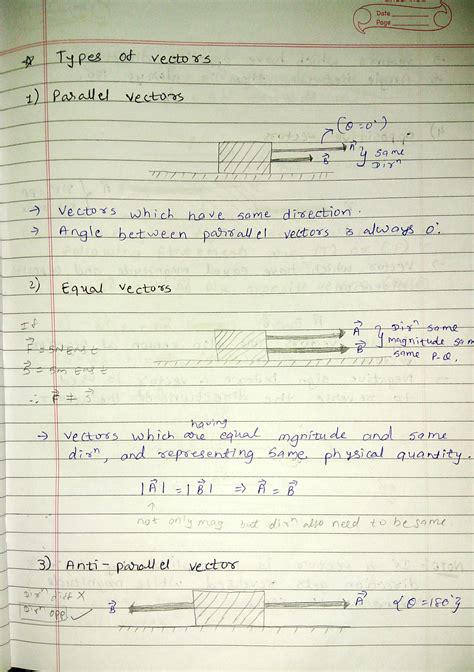 Date
Page
* Types of vectors.
1) Parallel vectors
(θ=0°)
A⃗
B⃗
} same
dirⁿ
→ Vectors which have same direction.
→ Angle between parrallel vectors is always 0°.
2) Equal vectors
If
F⃗ = 5N East
S⃗ = 5m East
∴ F⃗ ≠ S⃗
A⃗ } Dirⁿ same
magnitude sam
B⃗ same P.Q.
having
→ Vectors which are equal mgnitude and same
dirⁿ, and representing same physical quantity.
|A⃗| = |B⃗| ⇒ A⃗ = B⃗
not only mag but dirⁿ also need to be same.
3) Anti-parallel vector
Dirⁿ diff X
Dirⁿ opp ✓
B⃗
A⃗ {θ=180°}